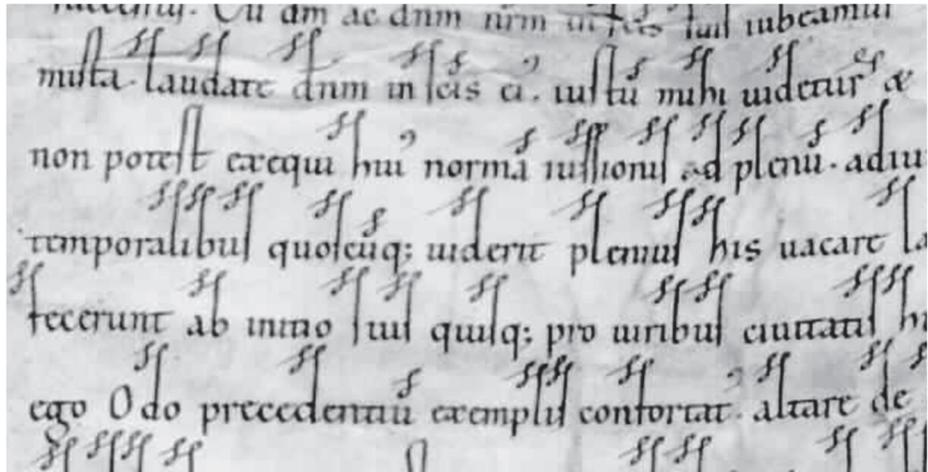 Cu am ac dnm nrm in scis suis iubeamur
mista. laudare dnm in scis ei. iustu mihi uidetur &
non potest exequi hui norma iussionis ad plenu. adiu
temporalibus quoscuq; uiderit plenius his uacare la
fecerunt ab initio sui quisq; pro uiribus ciuitatis hi
ego Odo precedentiu exemplis confortat. altare de